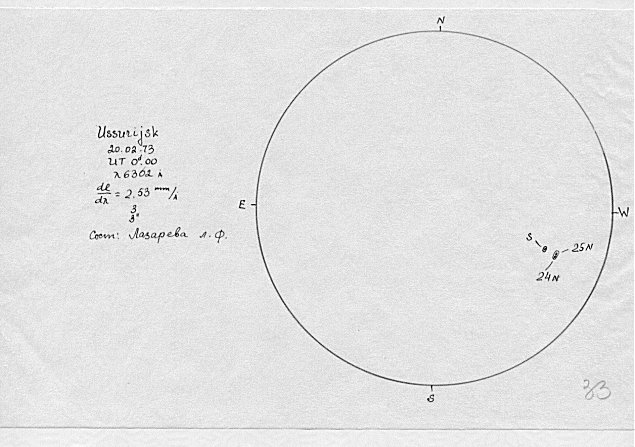 N
Ussurijsk
20.02.73
UT 0ʰ.00
λ 6302 Å
dl/dλ = 2.53 mm/Å
3
3"
Сост: Лазарева Л.Ф.
E
W
S 25N
24N
S
33